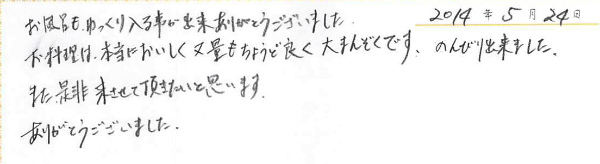 2014年5月24日
お風呂も、ゆっくり入る事が出来ありがとうございました。
お料理は、本当においしく又量もちょうど良く大まんぞくです、のんびり出来ました。
また是非来させて頂きたいと思います。
ありがとうございました。